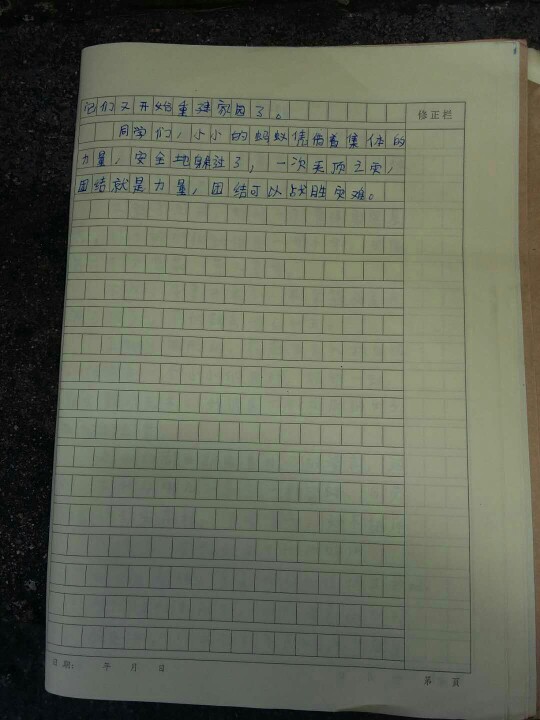 它们又开始重建家园了。
修正栏
同学们，小小的蚂蚁凭借着集体的
力量，安全地躲过了，一次灭顶之灾，
团结就是力量，团结可以战胜灾难。
日期： 年 月 日
第 页